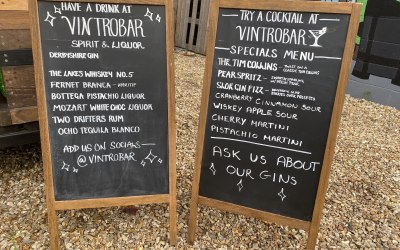 HAVE A DRINK AT
VINTROBAR
SPIRIT & LIQUOR
DERBYSHIRE GIN
THE LAKES WHISKEY NO.5
FERNET BRANCA
BOTTEGA PISTACHIO LIQUOR
MOZART WHITE CHOC LIQUOR
TWO DRIFTERS RUM
OCHO TEQUILA BLANCO
ADD US ON SOCIALS
@VINTROBAR
TRY A COCKTAIL AT
VINTROBAR
SPECIALS MENU
THE TIM COLLINS
CLASSIC TOM COLLINS
PEAR SPRITZ
SLOE GIN FIZZ
CRANBERRY CINNAMON SOUR
WISKEY APPLE SOUR
CHERRY MARTINI
PISTACHIO MARTINI
ASK US ABOUT
OUR GINS